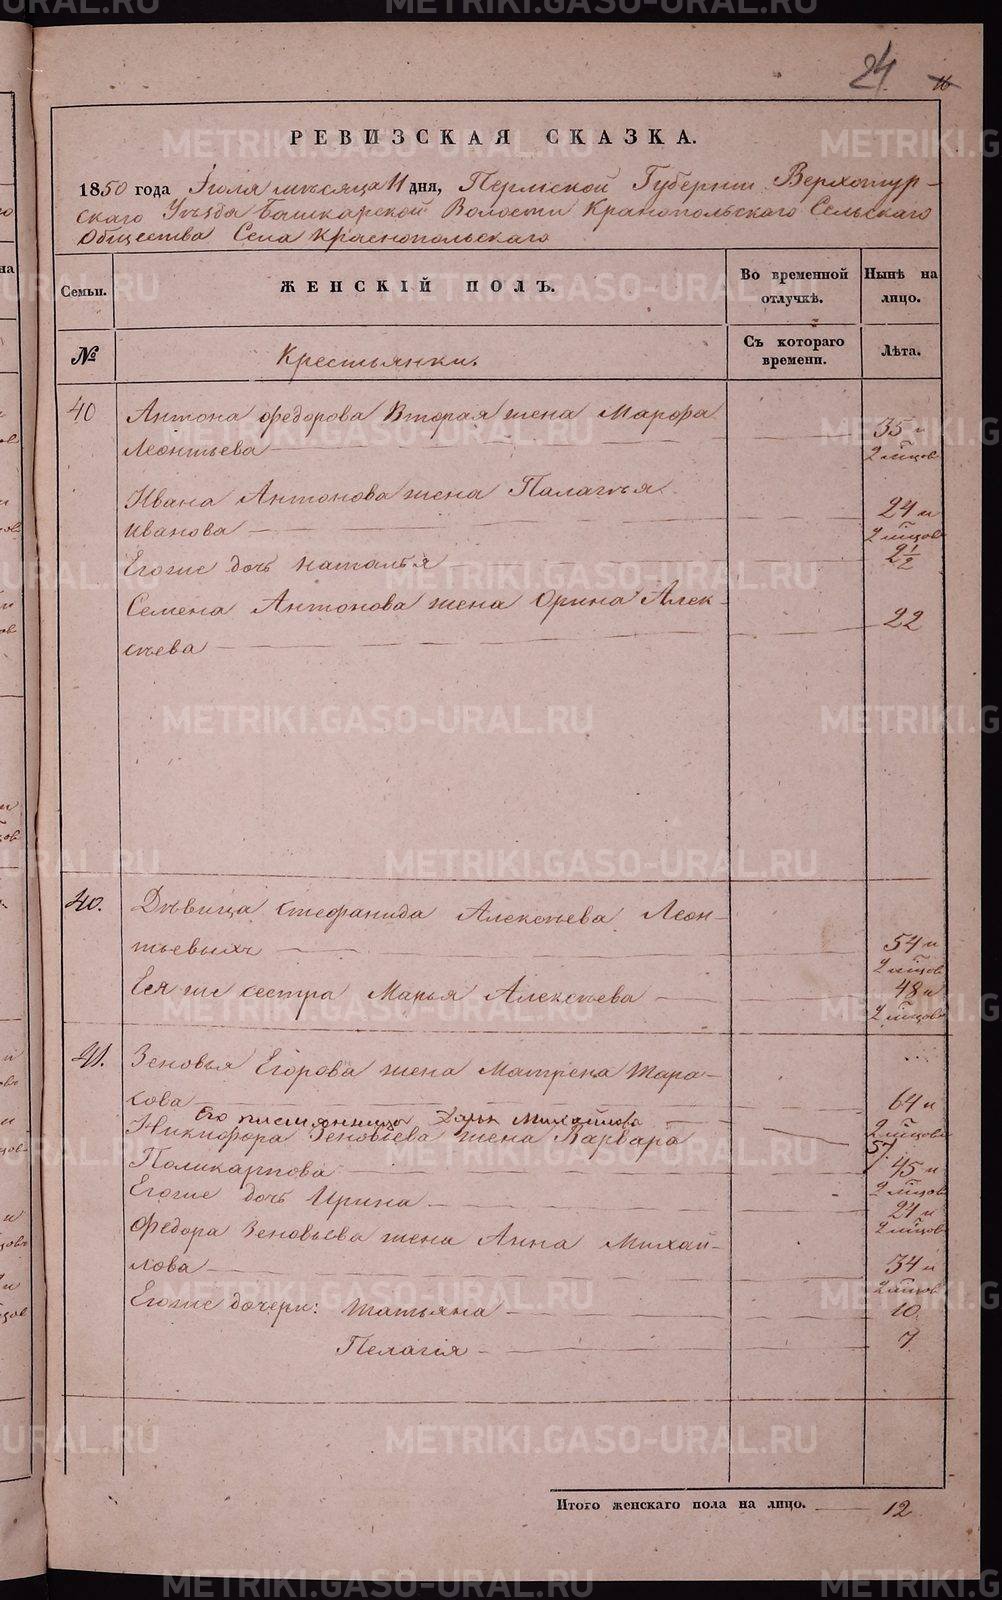 24
16
РЕВИЗСКАЯ СКАЗКА.
1850 года Іюля мѣсяца 11 дня, Пермской Губерніи Верхотур-
скаго Уѣзда Башкарской Волости Краснопольскаго Сельскаго
Общества Села Краснопольскаго
Семьи.
ЖЕНСКІЙ ПОЛЪ.
Во временной отлучкѣ.
Нынѣ на лицо.
№
Крестьянки.
Съ котораго времени.
Лѣта.
40 Антона Федорова Вторая жена Марфа
Леонтьева 35 и
2 мѣсцов
Ивана Антонова жена Палагѣя
Иванова 24 и
2 мѣсцов
Егоже дочь Наталья 2 1/2
Семена Антонова жена Орина Алек-
сѣева 22
40. Дѣвица Стефанида Алексѣева Леон-
тьевыхъ 54 и
2 мѣсцов
Ея же сестра Марья Алексѣева 48 и
2 мѣсцов
41. Зеновья Егорова жена Матрена Тара-
сова 64 и
2 мѣсцов
Его племянница Дарья Михайлова 57
Никифора Зеновьева жена Варвара
Поликарпова 45 и
2 мѣсцов
Егоже дочь Ирина 21 и
2 мѣсцов
Федора Зеновьева жена Анна Михай-
лова 34 и
2 мѣсцов
Егоже дочери: Татьяна 10
Пелагія 7
Итого женскаго пола на лицо. 12
METRIKI.GASO-URAL.RU